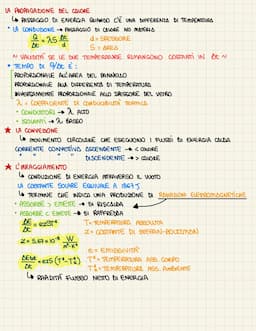 LA PROPAGAZIONE DEL CALORE
↳ PASSAGGIO DI ENERGIA QUANDO C'È UNA DIFFERENZA DI TEMPERATURA
• LA CONDUZIONE → PASSAGGIO DI CALORE NEI MATERIALI
Q/Δt = λS ΔT/d
d = SPESSORE
S = AREA
~ VALIDITÀ SE LE DUE TEMPERATURE RIMANGONO COSTANTI IN Δt ~
PROPORZIONALE ALL'AREA DEL PANNELLO
PROPORZIONALE ALLA DIFFERENZA DI TEMPERATURA
INVERSAMENTE PROPORZIONALE ALLO SPESSORE DEL VETRO
λ = COEFFICIENTE DI CONDUCIBILITÀ TERMICA
• CONDUTTORI → λ ALTO
• ISOLANTI → λ BASSO
★ LA CONVEZIONE
↳ MOVIMENTO CIRCOLARE CHE ESEGUONO I FLUSSI DI ENERGIA CALDA
CORRENTE CONVETTIVA ASCENDENTE → CALORE
" " DISCENDENTE →
★ L'IRRAGGIAMENTO
↳ CONDUZIONE DI ENERGIA ATTRAVERSO IL VUOTO
LA COSTANTE SOLARE EQUIVALE A
↳ TERMINE CHE INDICA UNA PRODUZIONE DI RADIAZIONI ELETTROMAGNETICHE
• ASSORBE > EMETTE → SI RISCALDA
• ASSORBE < EMETTE → SI RAFFREDDA
T = TEMPERATURA ASSOLUTA
Z = COSTANTE DI STEFAN-BOLTZMANN
e = EMISSIVITÀ
= TEMPERATURA ASS. CORPO
= TEMPERATURA ASS. AMBIENTE
↳ RAPIDITÀ FLUSSO NETTO DI ENERGIA